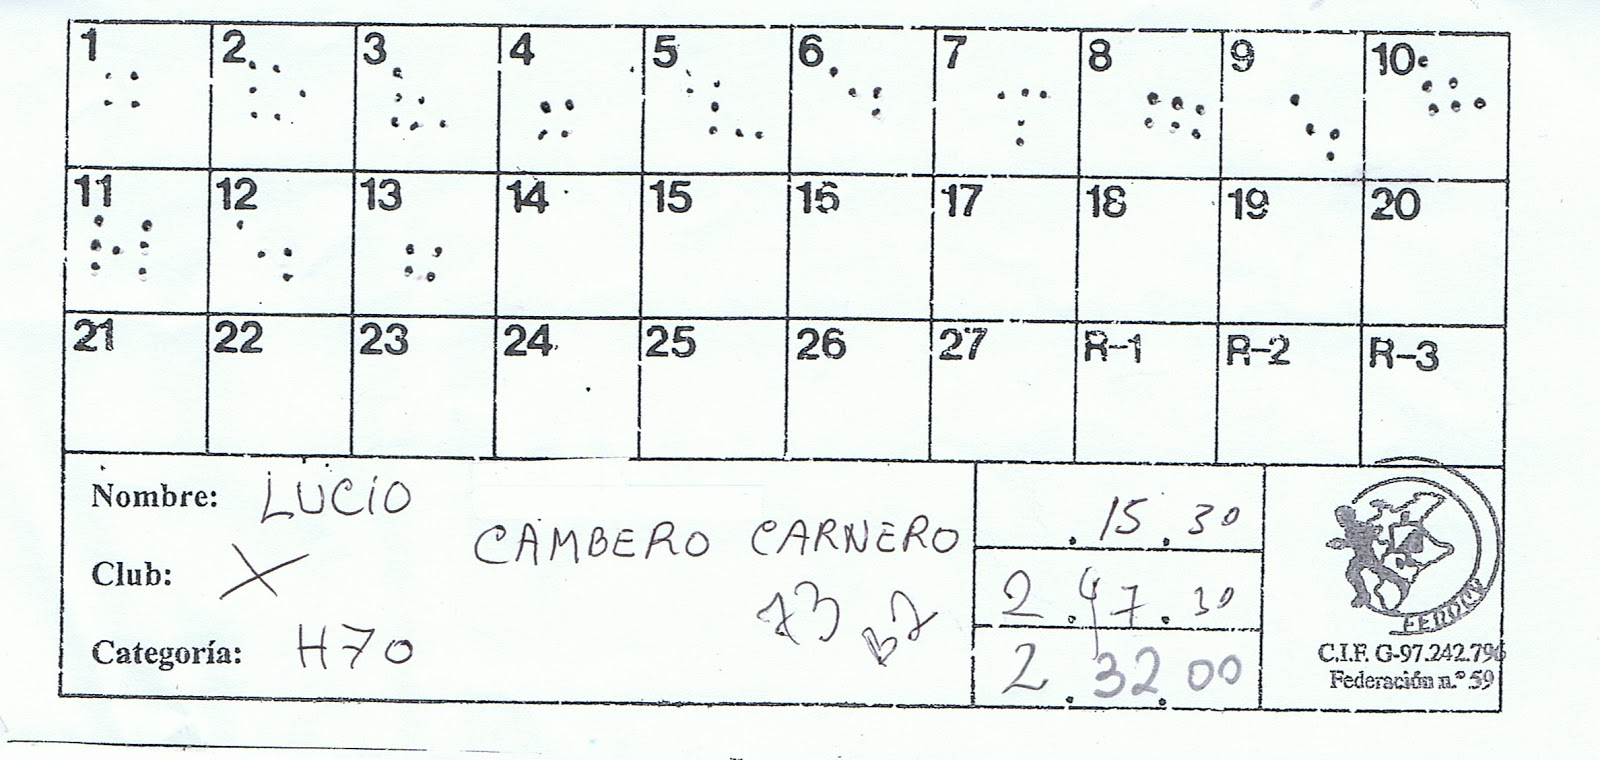 1 2 3 4 5 6 7 8 9 10
11 12 13 14 15 16 17 18 19 20
21 22 23 24 25 26 27 R-1 R-2 R-3
Nombre: LUCIO
CAMBERO CARNERO
Club: X
Categoría: H70
.15.30
2.47.30
2.32.00
FEDOCV
C.I.F. G-97.242.796
Federación n.º 59